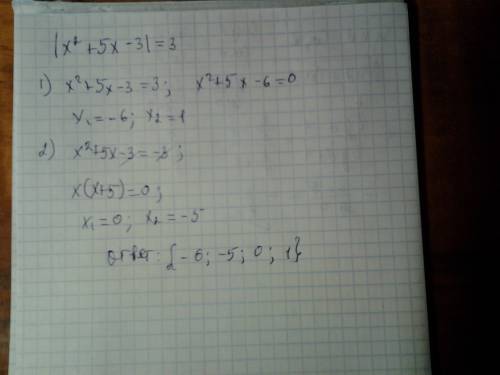 |x² + 5x - 3| = 3
1) x² + 5x - 3 = 3; x² + 5x - 6 = 0
x₁ = -6; x₂ = 1
2) x² + 5x - 3 = -3;
x(x+5) = 0;
x₁ = 0; x₂ = -5
ответ: {-6; -5; 0; 1}